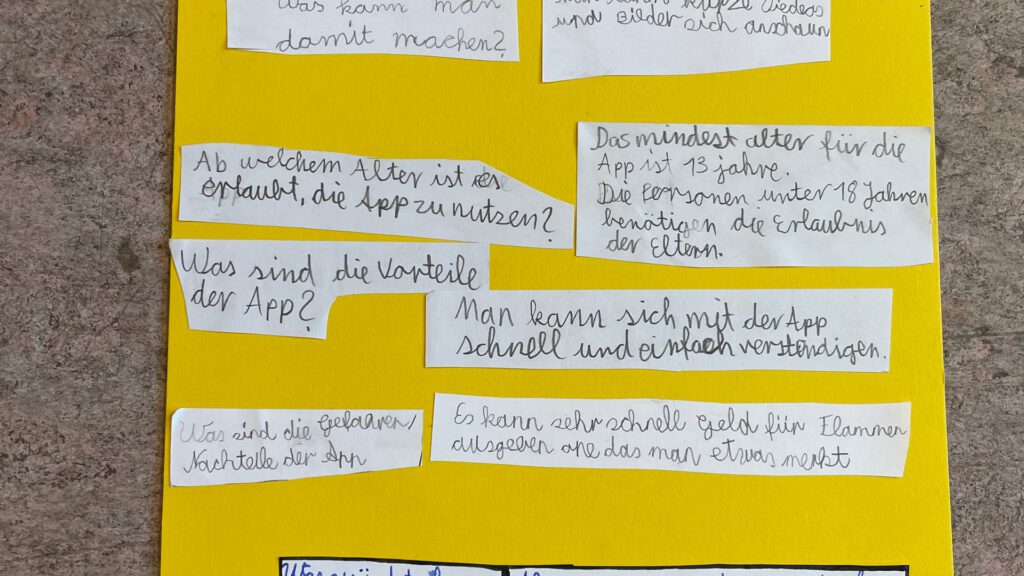 Was kann man
damit machen?
und Bilder sich anschaun
Ab welchem Alter ist es
erlaubt, die App zu nutzen?
Das mindest alter für die
App ist 13 jahre.
Die Personen unter 18 Jahren
benötigen die Erlaubnis
der Eltern.
Was sind die Vorteile
der App?
Man kann sich mit der App
schnell und einfach verständigen.
Was sind die Gefaaren/
Nachteile der App
Es kann sehr schnell Geld für Flammen
ausgeben one das man etwas merkt